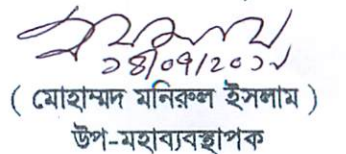 ১৪/০৭/২০১৮
( মোহাম্মদ মনিরুল ইসলাম )
উপ-মহাব্যবস্থাপক